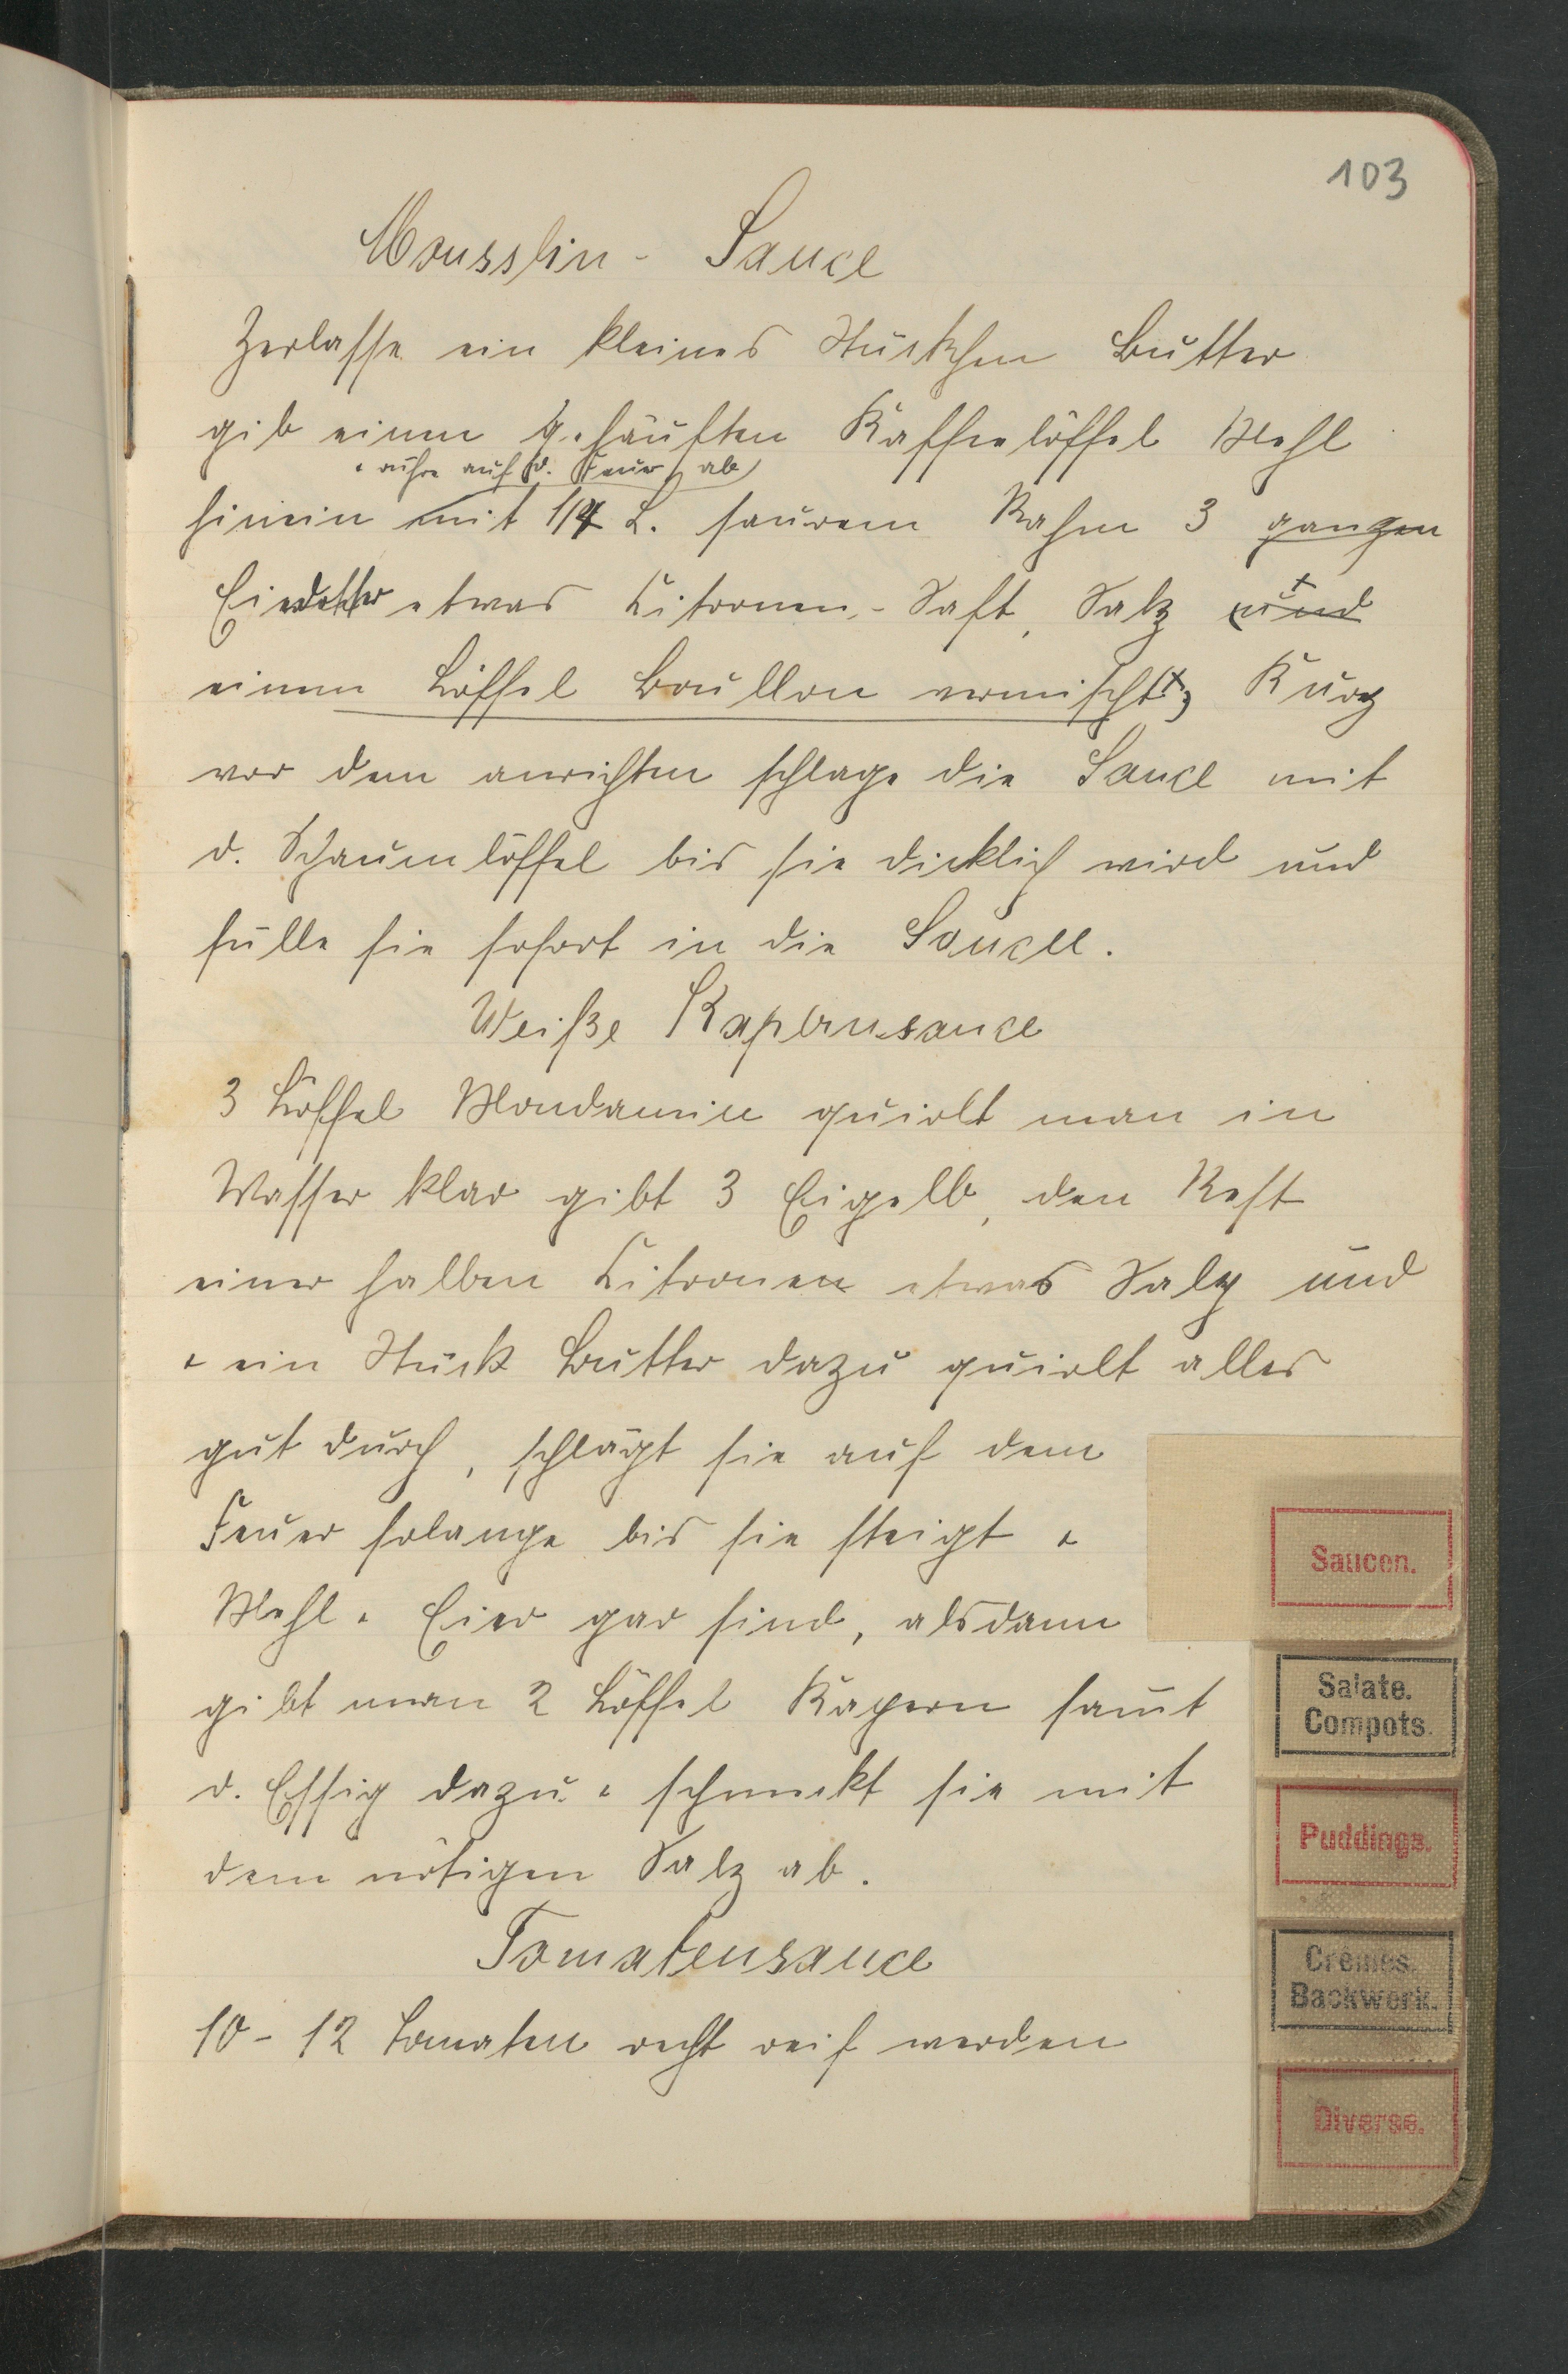 103
Mousslin - Sauce
Zerlasse ein kleines Stückchen Butter
gib einen gehäuften Kaffeelöffel Mehl
u rühre auf d. Feuer ab
hinein mit 1/4 L. saurem Rahm 3 ganzen
Eierdotter etwas Citronen-Saft, Salz und
einem Löffel Boullon vermischt, Kurz
vor dem anrichten schlage die Sauce mit
d. Schaumlöffel bis sie dicklich wird und
fülle sie sofort in die Sauce.
Weiße Kapernsauce
3 Löffel Mondamin quirlt man in
Wasser klar gibt 3 Eigelb, den Rest
einer halben Citronen etwas Salz und
u ein Stück Butter dazu quirlt alles
gut durch, schlägt sie auf dem
Feuer solange bis sie steigt u
Mehl u Eier gar sind, alsdann
gibt man 2 Löffel Kapern samt
d. Essig dazu u schmekt sie mit
dem nötigen Salz ab.
Tomatensauce
10 - 12 Tomaten recht reif werden
Saucen.
Salate.
Compots.
Puddings.
Crêmes.
Backwerk.
Diverse.